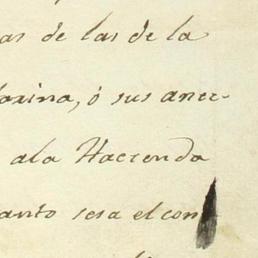 as de las de la
arina, ó sus anec-
ala Hacienda
anto sera el con